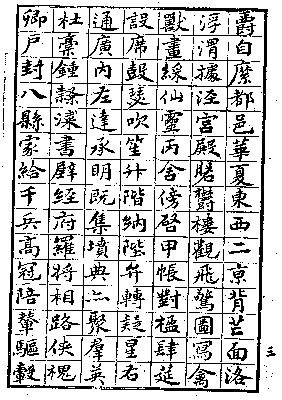 爵自縻都邑華夏東西二京背芒面洛
浮渭據涇宮殿盤鬱樓觀飛驚圖寫禽
獸畫綵仙靈丙舍傍啓甲帳對楹肆筵
設席鼓瑟吹笙升階納陛弁轉疑星右
通廣內左達承明既集墳典亦聚羣英
杜稾鍾隸漆書壁經府羅將相路俠槐
卿戶封八縣家給千兵高冠陪輦驅轂